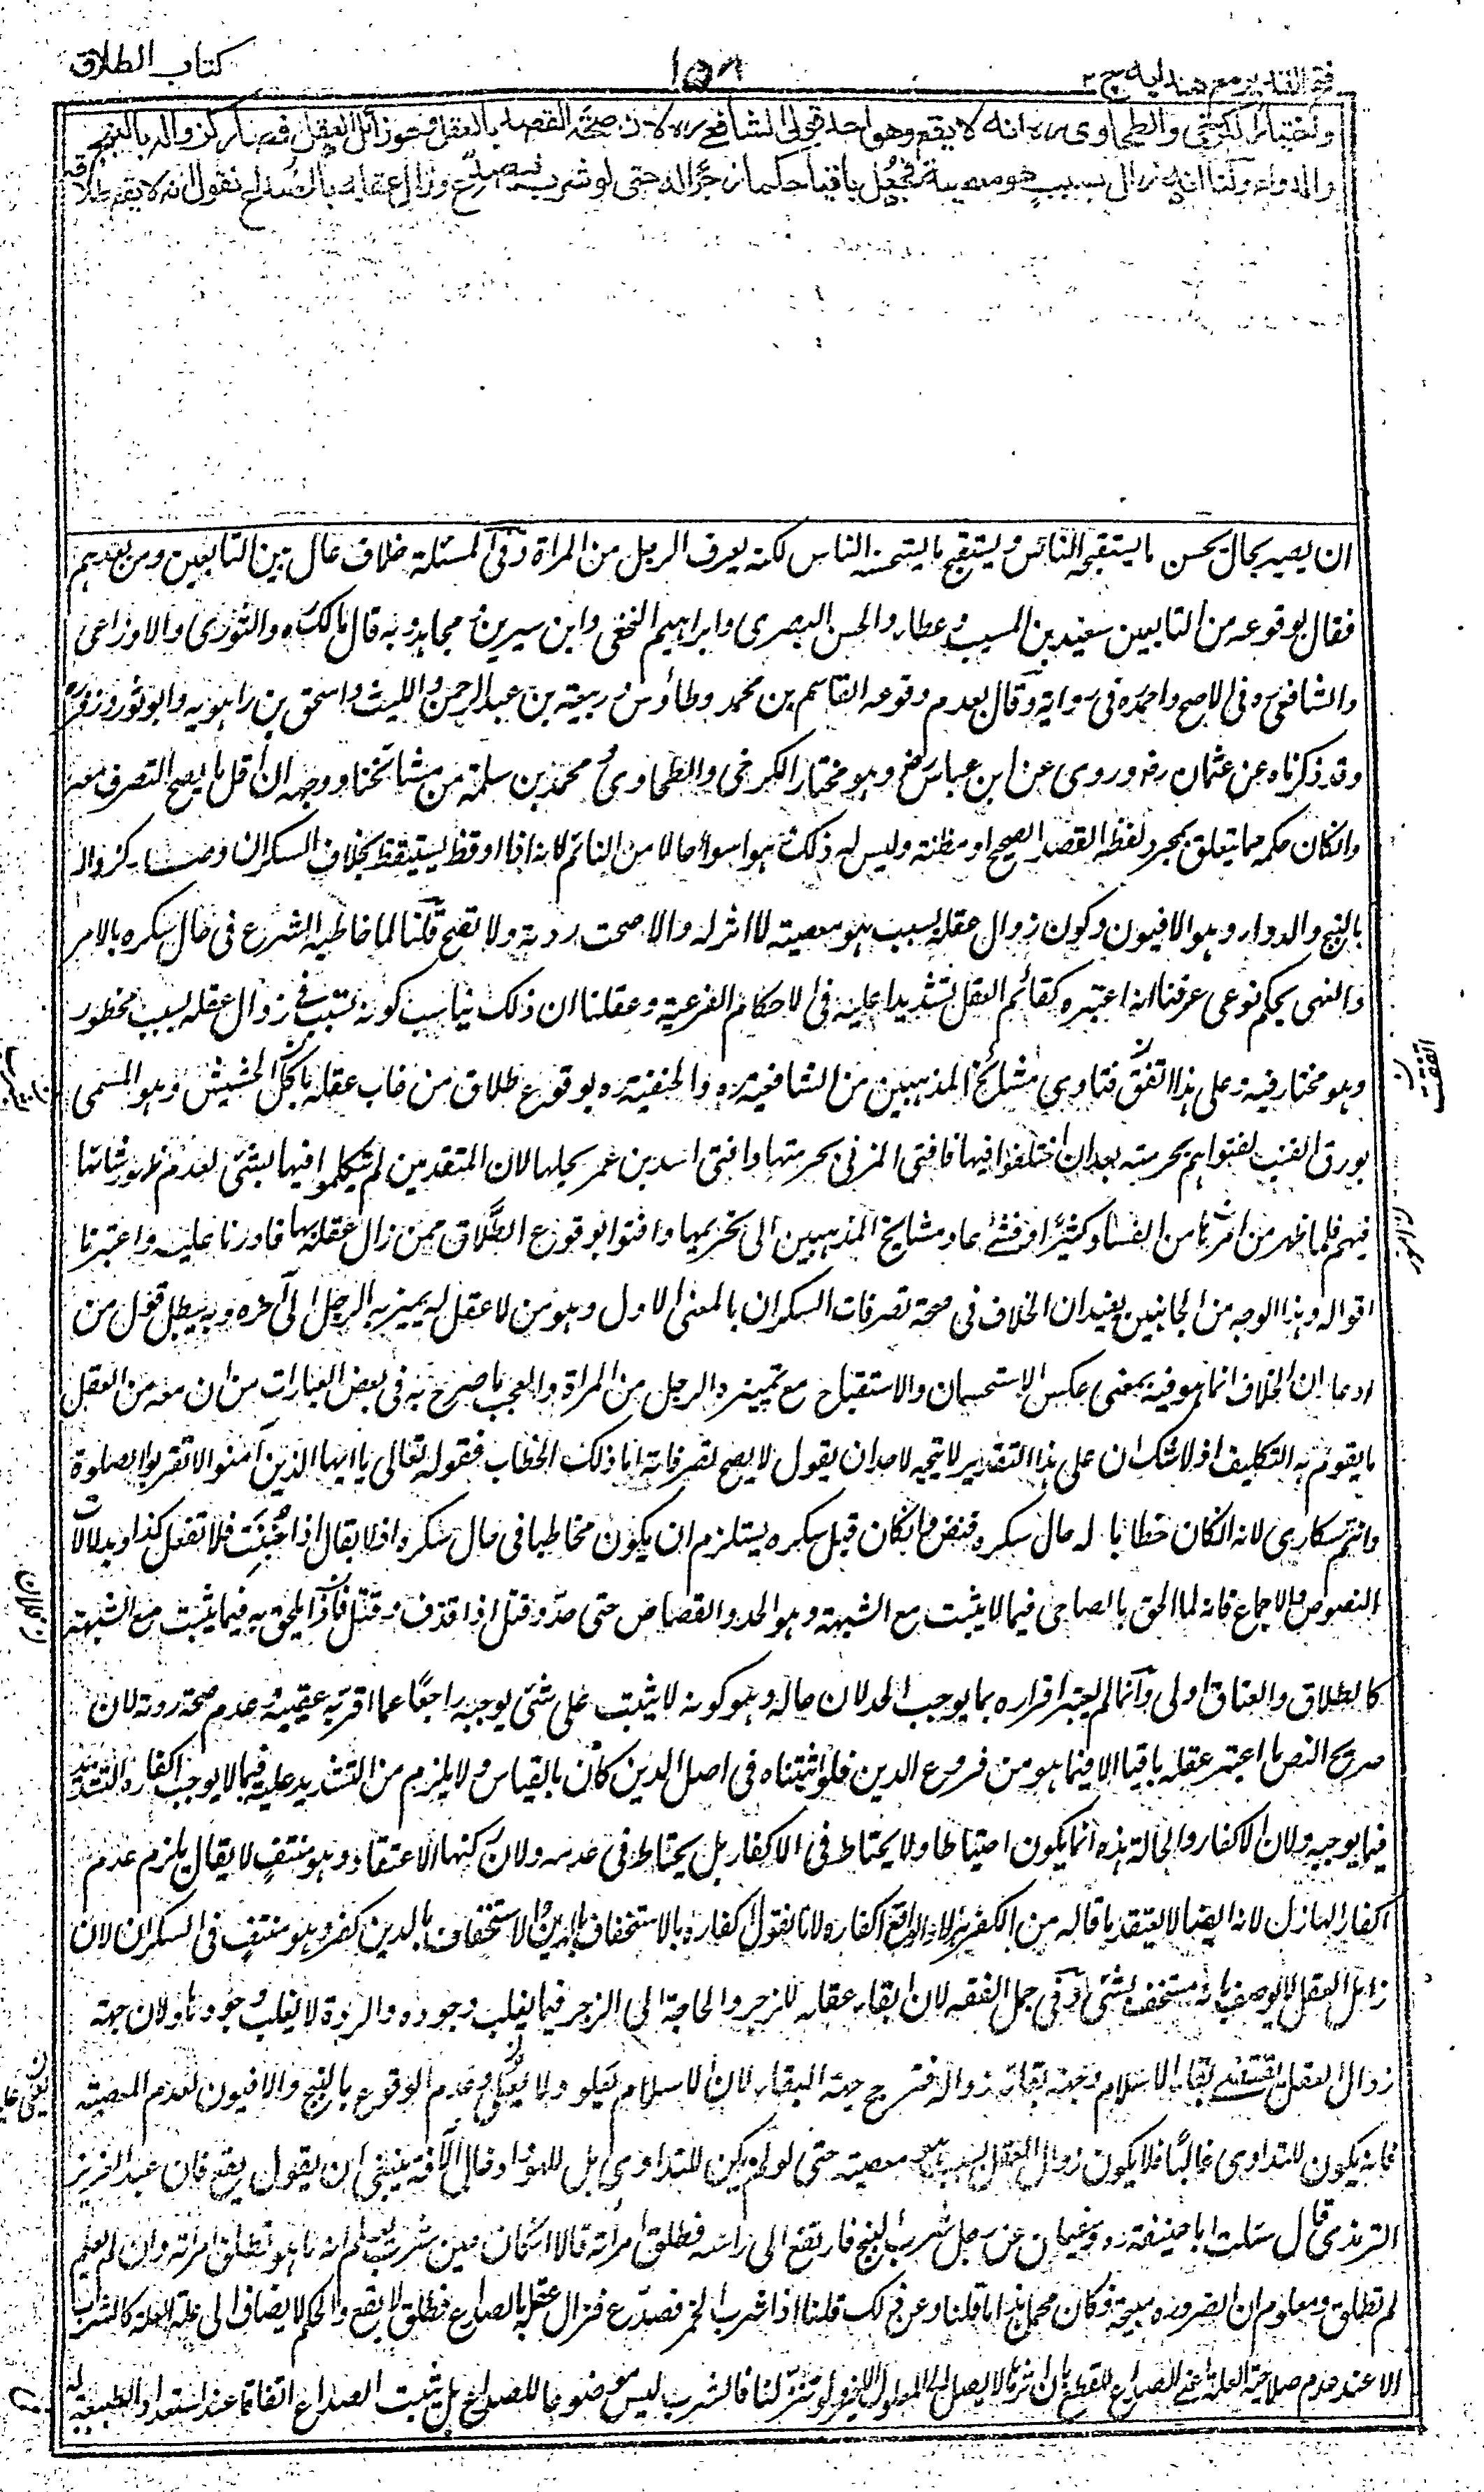 فتح القدير مع هدايه ج ٢
١٥٦
كتاب الطلاق
واختيار الكرخي والطحاوى ره انه لا يقع وهو احد قولى الشافعي ره لان صحة القصد بالعقل وهو زائل العقل فصار كزواله بالبنج
والدواء ولنا انه زال بسبب هو معصية فجعل باقيا حكما زجرا له حتى لو شرب فصدع وزال عقله بالصداع نقول انه لا يقع طلاقه
ان يصير بحال يحسن ما يستقبحه الناس ويستقبح ما يستحسنه الناس لكنه يعرف الرجل من المراة وفى المسئلة خلاف عال بين التابعين ومن بعدهم
فقال بوقوعه من التابعين سعيد بن المسيب وعطاء والحسن البصرى وابراهيم النخعى وابن سيرين ومجاهد وبه قال مالك ره والثورى والاوزاعى
والشافعى ره فى الاصح واحمد ره فى رواية وقال بعدم وقوعه القاسم بن محمد وطاؤس وربيعة بن عبد الرحمن والليث واسحق بن راهويه وابو ثور وزفر ره
وقد ذكرناه عن عثمان رض وروى عن ابن عباس رض وهو مختار الكرخى والطحاوى ومحمد بن سلمة من مشائخنا ووجهه ان اقل ما يصح التصرف معه
وانكان حكمه مما يتعلق بمجرد لفظه القصد الصحيح او مظنته وليس له ذلك وهو اسوأ حالا من النائم لانه اذا اوقظ يستيقظ بخلاف السكران وصار كزواله
بالبنج والدواء وهو الافيون وكون زوال عقله بسبب هو معصية لا اثر له والا صحت ردته ولا تصح قلنا لما خاطبه الشرع فى حال سكره بالامر
والنهى بحكم نوعى عرفنا انه اعتبره كقائم العقل تشديدا عليه فى الاحكام الفرعية وعقلنا ان ذلك يناسب كونه تسبب فى زوال عقله بسبب محظور
وهو مختار فيه وعلى هذا اتفق فتاوى مشائخ المذهبين من الشافعية ره والحنفية ره بوقوع طلاق من غاب عقله باكل الحشيش وهو المسمى
بورق القنب لفتواهم بحرمته بعد ان اختلفوا فيها فافتى المزنى بحرمتها وافتى اسد بن عمر بحلها لان المتقدمين لم يتكلموا فيها بشئ لعدم ظهور شانها
فيهم فلما ظهر من امرها من الفساد كثيرا وفشى عاد مشايخ المذهبين الى تحريمها وافتوا بوقوع الطلاق ممن زال عقله بها فادرنا عليه واعتبرنا
اقواله وهذا الوجه من الجانبين يفيد ان الخلاف فى صحة تصرفات السكران بالمعنى الاول وهو من لا عقل له يميز به الرجل الى آخره وبه يبطل قول من
ادعى ان الخلاف انما هو فيه بمعنى عكس الاستحسان والاستقباح مع تمييزه الرجل من المراة والعجب ما صرح به فى بعض العبارات من ان معه من العقل
ما يقوم به التكليف اذ لا شك ان على هذا التقدير لا يتجه لاحد ان يقول لا يصح تصرفاته اما ذلك الخطاب فقوله تعالى يا ايها الذين آمنوا لا تقربوا الصلوة
وانتم سكارى لانه انكان خطابا له حال سكره فنص وانكان قبل سكره يستلزم ان يكون مخاطبا فى حال سكره اذ لا يقال اذا جننت فلا تفعل كذا وبدلالات
النصوص والاجماع فانه لما الحق بالصاحى فيما لا يثبت مع الشبهة وهو الحد والقصاص حتى حد وقتل اذا قذف وقتل فلان يلحق به فيما يثبت مع الشبهة
كالطلاق والعتاق اولى وانما لم يعتبر اقراره بما يوجب الحد لان حاله وهو كونه لا يثبت على شئ يوجبه راجعًا عما اقر به عقيبه وعدم صحة ردته لان
صريح النص ما اعتبر عقله باقيا الا فيما هو من فروع الدين فلو اثبتناه فى اصل الدين كان بالقياس ولا يلزم من التشديد عليه فيما لا يوجب اكفاره التشديد
فيما يوجبه ولان الاكفار والحالة هذه انما يكون احتياطا ولا يحتاط فى الاكفار بل يحتاط فى عدمه ولان ركنها الاعتقاد وهو منتف لا يقال يلزم عدم
اكفار الهازل لانه ايضا لا يعتقد ما قاله من الكفر هزلا والواقع اكفاره لانا نقول اكفاره بالاستخفاف بالدين والاستخفاف بالدين كفر وهو منتف فى السكران لان
زائل العقل لا يوصف بانه مستخف بشئ وفى جمل الفقه لان ابقاء عقله للزجر والحاجة الى الزجر فيما يغلب وجوده والردة لا يغلب وجودها ولان جهة
زوال العقل يقتضى بقاء الاسلام وجهة بقائه زواله فترجح جهة البقاء لان الاسلام يعلو ولا يعلى وعدم الوقوع بالبنج والافيون لعدم المعصية
فانه يكون للتداوى غالبًا فلا يكون زوال العقل بسبب هو معصية حتى لو لم يكن للتداوى بل للهو وادخال الآفة ينبغى ان يقول يقع فان عبد العزيز
الترمذى قال سئلت ابا حنيفة ره وسفيان عن رجل شرب البنج فارتفع الى راسه فطلق امرأته قالا ان كان حين شرب يعلم انه ما هو تطلق امراته وان لم يعلم
لم تطلق ومعلوم ان الضرورة مبيحة فكان محمل هذا ما قلنا وعن ذلك قلنا اذا شرب الخمر فصدع فزال عقله بالصداع فطلق لا يقع والحكم لا يضاف الى علة العلة كالشراب
الا عند عدم صلاحية العلة اعنى الصداع للقطع بان اثرها لا يصل الى المعلول الاخير ولو تنزلنا فالشرب ليس موضوعا للصداع بل يثبت الصداع اتفاقا عند استعداد الطبيعة له
اتفقت